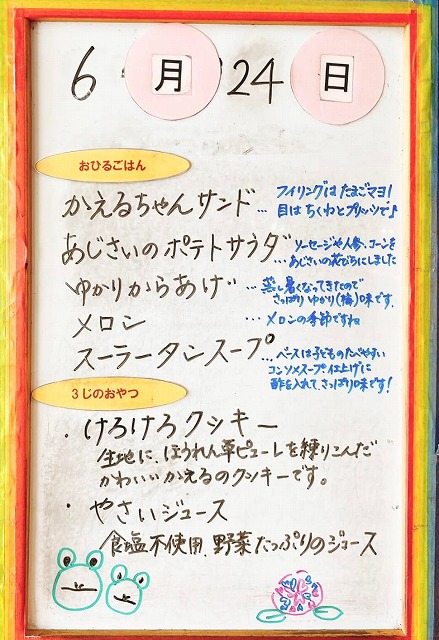 6月24日
おひるごはん
かえるちゃんサンド… フィリングはたまごマヨ!
目はちくわとプリッツで♪
あじさいのポテトサラダ… ソーセージや人参、コーンを
あじさいの花びらにしました
ゆかりからあげ… 蒸し暑くなってきたので
さっぱりゆかり(梅)味です。
メロン … メロンの季節ですね
スーラータンスープ… ベースは子どものたべやすい
コンソメスープ仕上げに
酢を入れて、さっぱり味です!
3じのおやつ
・けろけろクッキー
生地に、ほうれん草ピューレを練りこんだ
かわいいかえるのクッキーです。
・やさいジュース
食塩不使用、野菜たっぷりのジュース